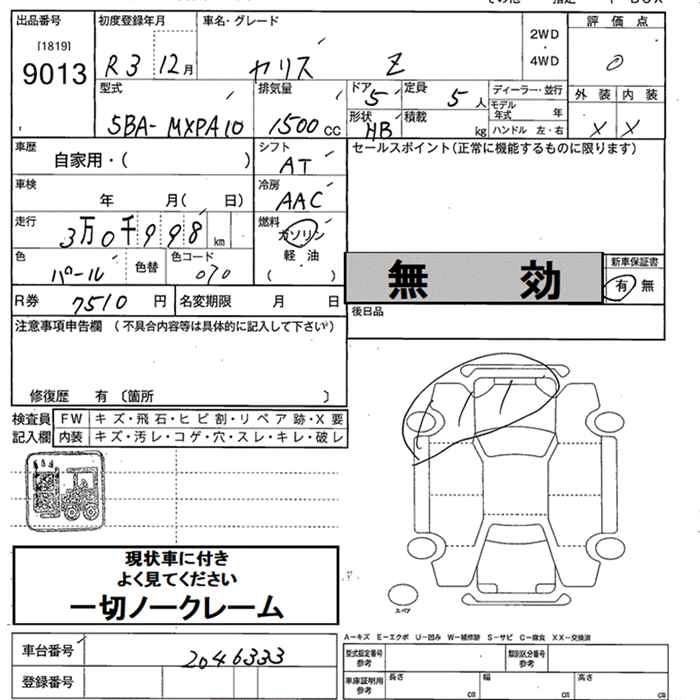 出品番号
[1819]
9013
初度登録年月
R3 12月
車名・グレード
ヤリス Z
2WD
・
4WD
評価点
0
外装 内装
X X
型式
5BA-MXPA10
排気量
1500 CC
ドア
5
定員
5人
形状
HB
積載
kg
ディーラー・並行
モデル年式 年
ハンドル 左・右
車歴
自家用・( )
シフト
AT
セールスポイント(正常に機能するものに限ります)
車検
年 月( 日)
冷房
AAC
走行
3万0千998 km
燃料
ガソリン
軽油
( )
色
パール
色替
色コード
070
無効
新車保証書
有 無
R券 7510 円
名変期限 月 日
後日品
注意事項申告欄 (不具合内容等は具体的に記入して下さい)
修復歴 有 〔箇所 〕
検査員記入欄
FW キズ・飛石・ヒビ割・リペア跡・X要
内装 キズ・汚レ・コゲ・穴・スレ・キレ・破レ
現状車に付き
よく見てください
一切ノークレーム
スペア
A-キズ E-エクボ U-凹み W-補修跡 S-サビ C-腐食 XX-交換済
車台番号 2046333
登録番号
型式指定番号 参考
類別区分番号 参考
車庫証明用 参考
長さ cm
幅 cm
高さ cm